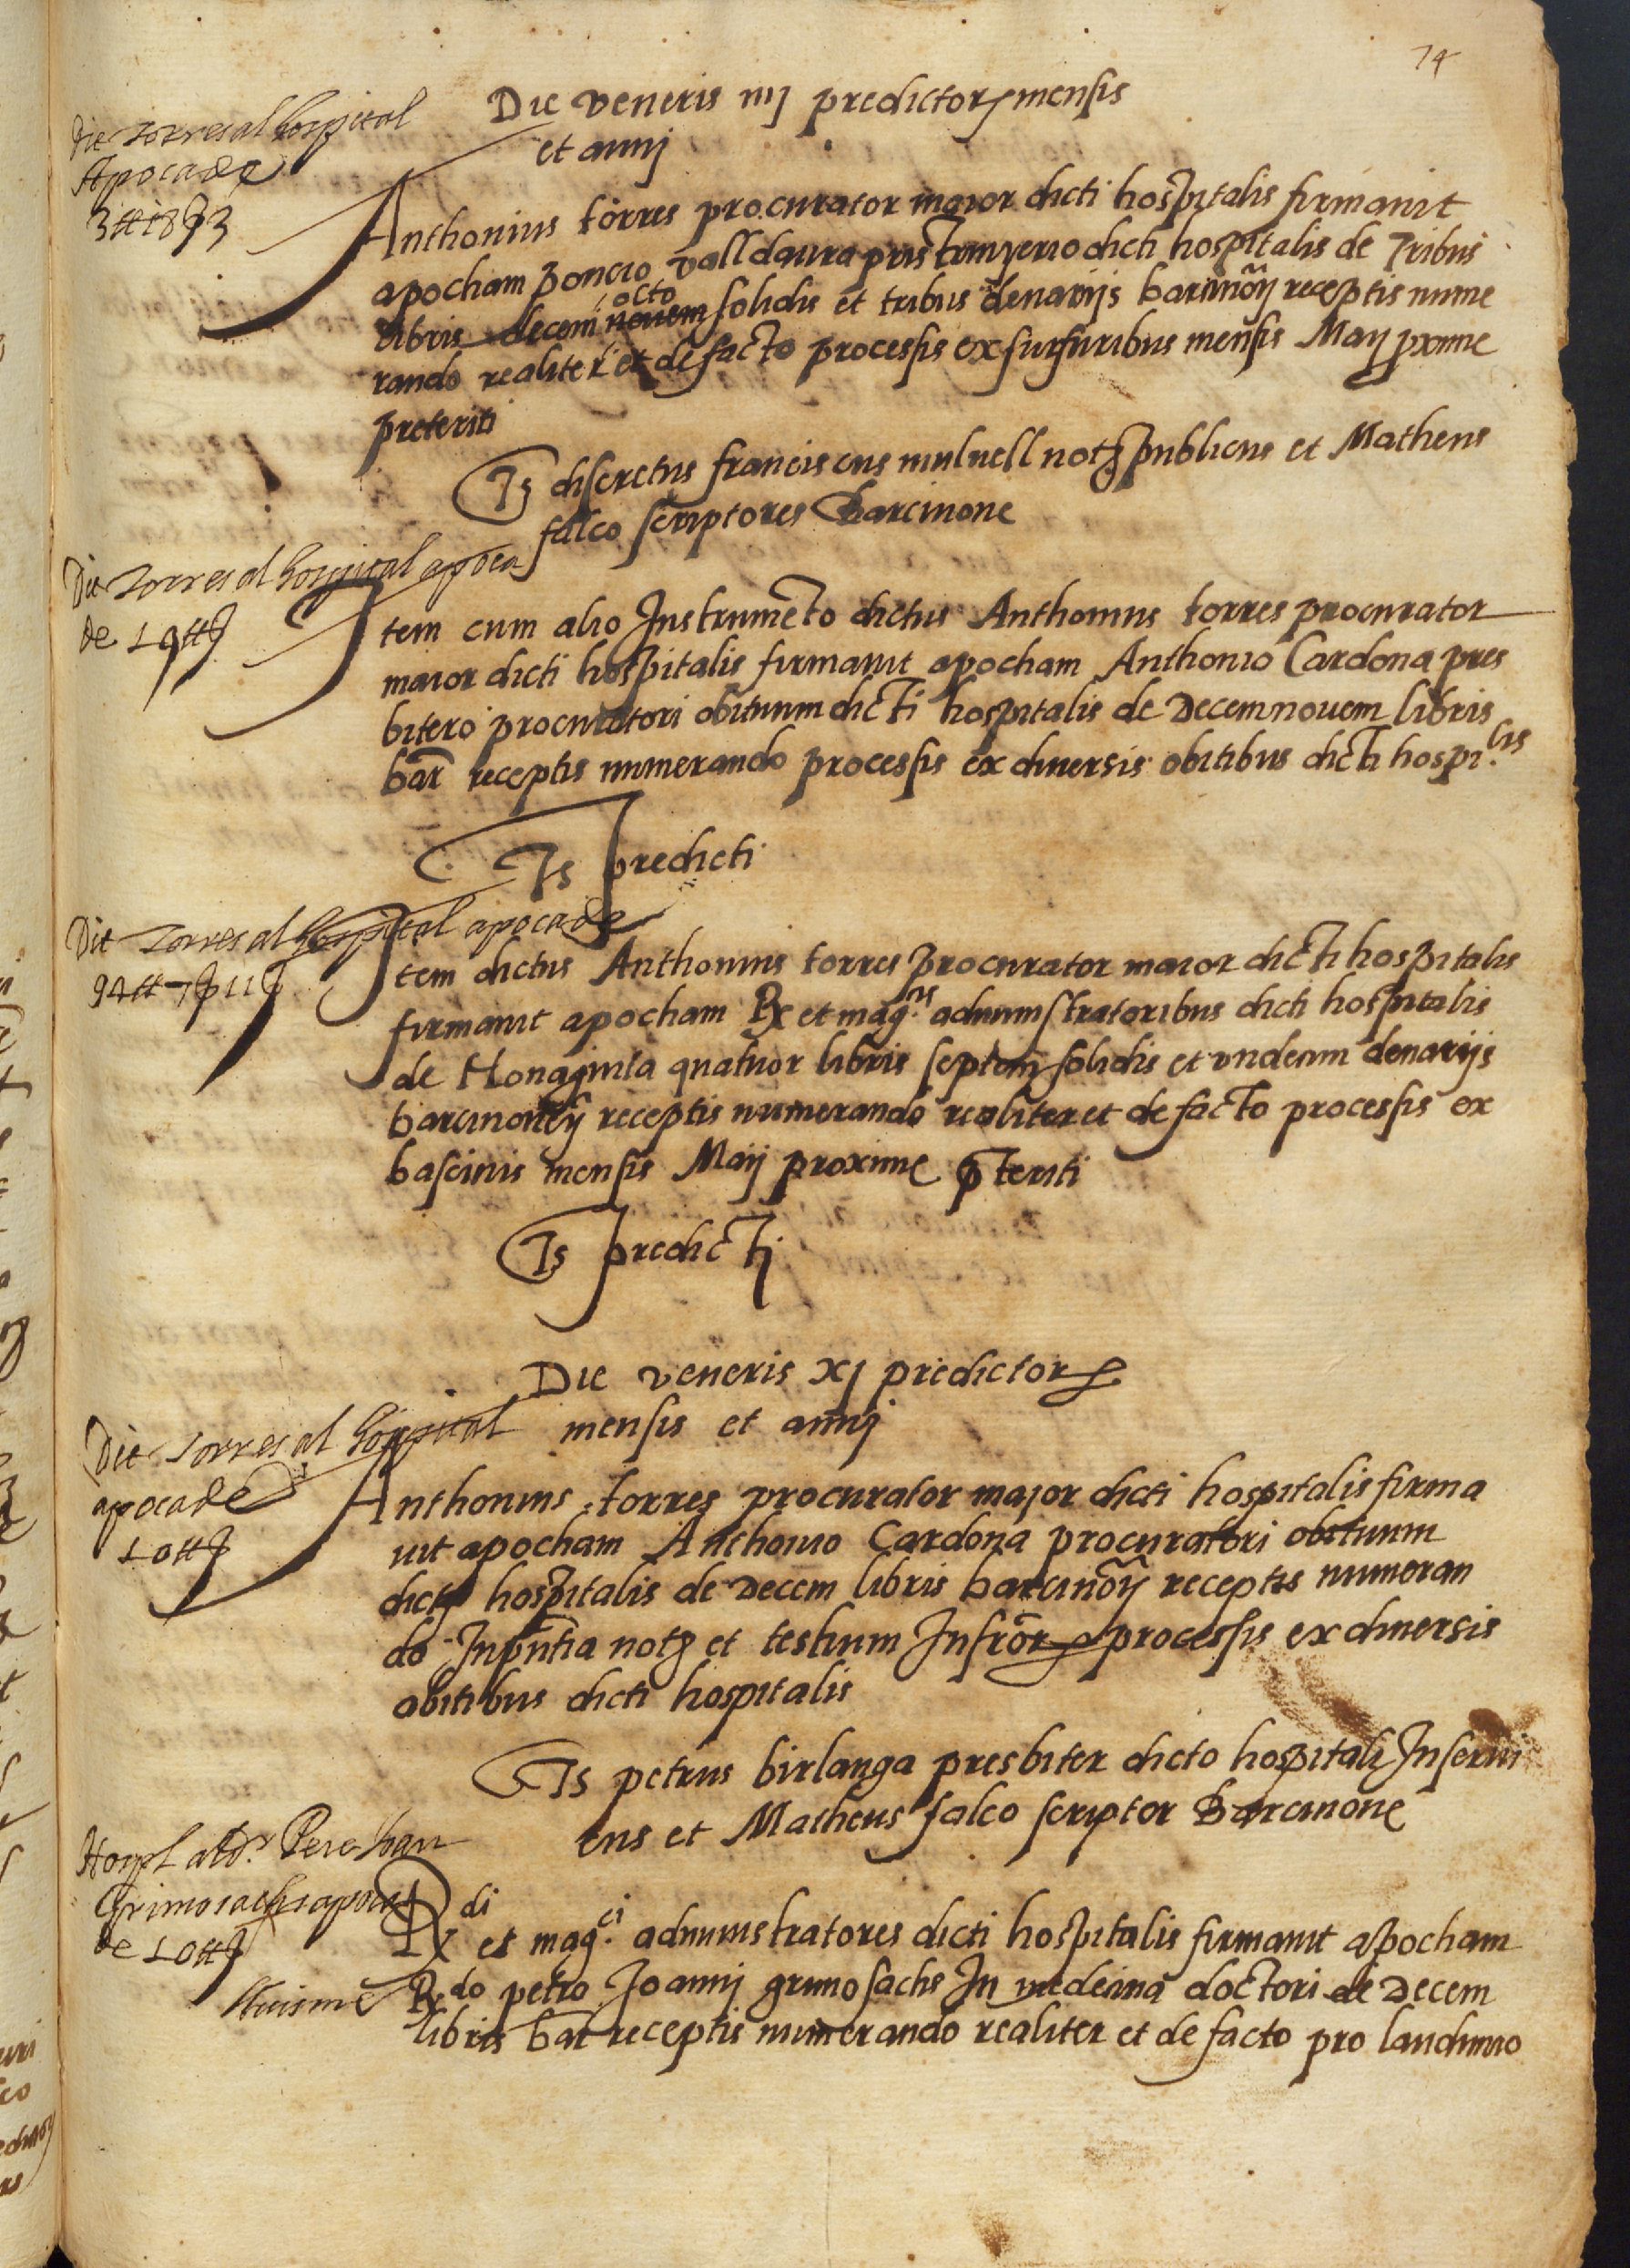 74
Die veneris iiij predictorꝝ mensis
et annj
Dit Torres al hospital
Apoca de
3 tt 18 ẞ 3
Anthonius torres procurator maior dicti hospitalis firmauit
apocham Poncio valldaura pristinyerio dicti hospitalis de Tribus
libris decem novem octo solidis et tribus denarijs barcinoñ receptis nume
rando realiter et de facto processis ex furfuribus mensis Maij pxime
preteriti
Ts discretus franciscus mulnell notꝫ publicus et Matheus
falco scriptores Barcinone
Dit Torres al hospital apoca
de 19 tt ẞ
Item cum alio Instrumēto dictus Anthonius torres procurator
maior dicti hospitalis firmauit apocham Anthonio Cardona pres
bitero procuratori obituum dicti hospitalis de Decemnouem libris
bar̄ receptis numerando processis ex diuersis obitibus dicti hospi.lis
Ts predicti
Dit Torres al hospital apoca de
94 tt 7 ẞ 11 ẞ
Item dictus Anthonius torres procurator maior dicti hospitalis
firmauit apocham Rx et mag.cis administratoribus dicti hospitalis
de Nonaginta quatuor libris septem solidis et vndecim denarijs
barcinoneñ receptis numerando realiter et de facto processis ex
bascinis mensis Maij proxime p̄teriti
Ts predictj
Die veneris xj predictorꝝ
mensis et annj
Dit Torres al hospital
apoca de
10 tt ẞ
Anthonius torres procurator major dicti hospitalis firma
uit apocham Anthonio Cardona procuratori obituum
dictj hospitalis de Decem libris barcinoñ receptis numeran
do Inpn̄tia notꝫ et testium Infrōrꝝ processis ex diuersis
obitibus dicti hospitalis
Ts petrus birlanga presbiter dicto hospitali Inserui
ens et Matheus falco scriptor Barcinone
Hospl al d.r Pere Joan
Grimosachs apoca
de 10 tt ẞ
lluisme
Rx di et mag.ci administratores dicti hospitalis firmauit apocham
Rdo petro Joannj grimosachs In medicina doctori de Decem
libris bar̄ receptis numerando realiter et de facto pro laudimio